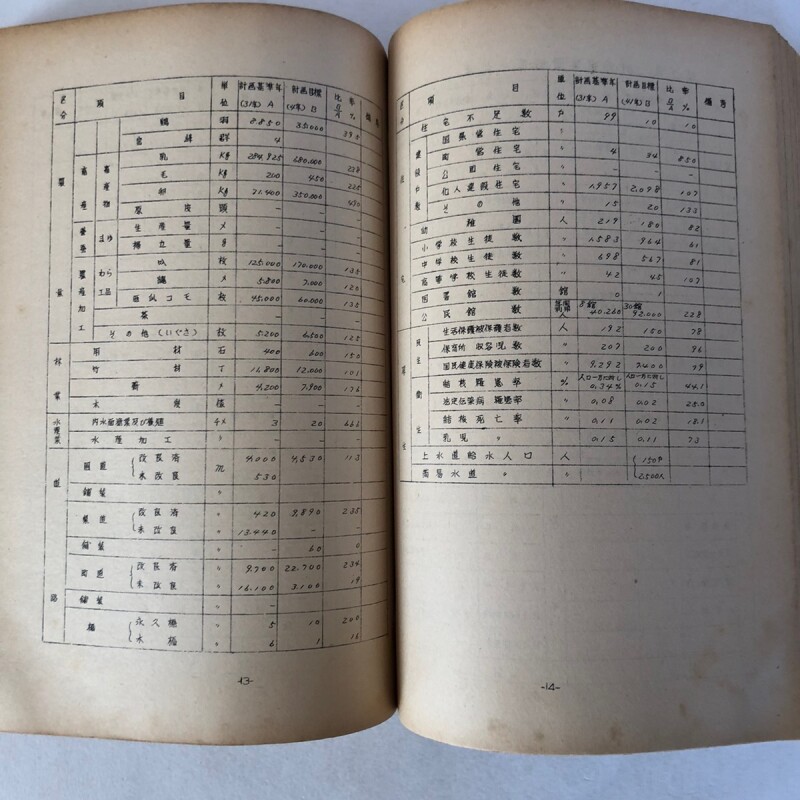 区分 項目 単位 計画基準年(31年)A 計画目標(41年)B 比率 B/A % 備考
農業
畜産
鶏 羽 8.850 35.000 395
蜜蜂 群 4 -
畜産物
乳 Kg 284.925 680.000 238
毛 Kg 200 450 225
卵 Kg 71.400 350.000 490
原皮 頭 - -
養蚕 まゆ
生産量 〃 - -
掃立量 - -
農産加工
わら工品
叺 枚 125.000 170.000 135
縄 〃 5.800 7.000 120
莚以コモ 枚 45.000 60.000 135
茶 - -
その他(いぐさ) 枚 5.200 6.500 125
林業
用材 石 400 600 150
竹材 丁 11,800 12.000 101
薪 〃 4,200 7,900
木炭 俵 - -
水産業
内水面漁業及び養鯉 3 20 666
水産加工 〃 - -
道路
国道 改良済 m 4,000 4,530 113
未改良 530
舗装 〃 -
県道 改良済 〃 420 9,890
未改良 〃 13.440 -
舗装 〃 - 60 0
町道 改良済 〃 9.700 22,700 234
未改良 〃 16,100 3,100 19
舗装 〃 -
橋 永久橋 〃 5 10 200
木橋 〃 6 1 16
-13-
区分 項目 単位 計画基準年(31年)A 計画目標(41年)B 比率 B/A % 備考
住宅不足数 戸 99 10 10
建設戸数
国県営住宅 〃 - -
町営住宅 〃 4 34 850
公団住宅 〃 - -
個人建設住宅 〃 1,957 2,098 107
その他 〃 15 20 133
幼稚園 人 219 180 82
小学校生徒数 〃 1.583 964 61
中学校生徒数 〃 698 567 81
高等学校生徒数 〃 42 45 107
図書館 館 0 1
公民館数 人 8館 40.260 30館 92.000 228
厚生
民生
生活保護被保護者数 人 192 150 78
保育所収容児数 〃 207 200 96
国民健康保険被保険者数 〃 9,292 7.400 79
衛生
結核罹患率 % 人口一万に対し 0.34% 人口一万に対し 0.15 44.1
法定伝染病罹患率 〃 0.08 0.02 25.0
結核死亡率 〃 0.11 0.02 18.1
乳児〃 〃 0.15 0.11 73
上水道給水人口 人 150戸
簡易水道〃 〃 2,500人
-14-